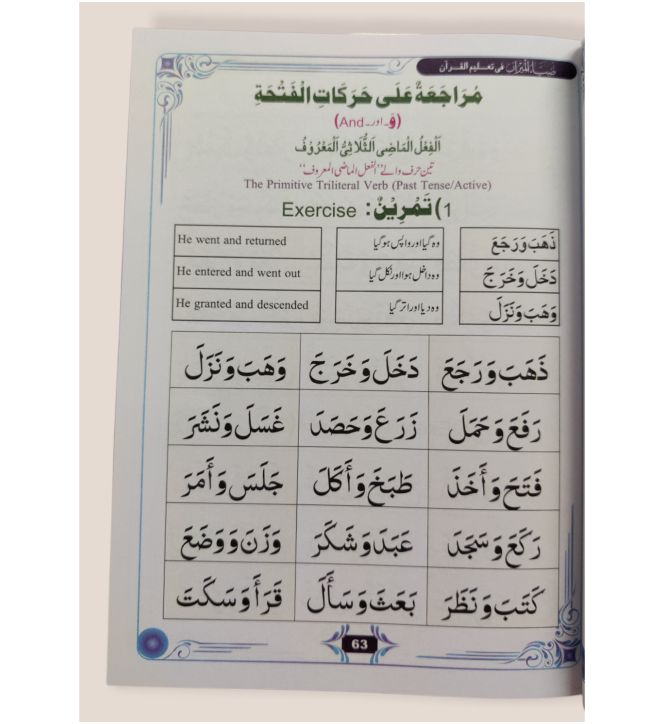 ضیاءالمیزان فی تعلیم القرآن
مُرَاجَعَةٌ عَلَى حَرَكَاتِ الْفَتْحَةِ
(وَ۔اور۔And)
اَلْفِعْلُ الْمَاضِى اَلثُّلَاثِىُّ اَلْمَعْرُوْفُ
تین حرف والے "الفعل الماضی المعروف"
The Primitive Triliteral Verb (Past Tense/Active)
1) تَمْرِيْنٌ: Exercise
ذَهَبَ وَرَجَعَ وہ گیا اور واپس ہو گیا He went and returned
دَخَلَ وَخَرَجَ وہ داخل ہوا اور نکل گیا He entered and went out
وَهَبَ وَنَزَلَ وہ دیا اور اتر گیا He granted and descended
ذَهَبَ وَرَجَعَ دَخَلَ وَخَرَجَ وَهَبَ وَنَزَلَ
رَفَعَ وَحَمَلَ زَرَعَ وَحَصَدَ غَسَلَ وَنَشَرَ
فَتَحَ وَأَخَذَ طَبَخَ وَأَكَلَ جَلَسَ وَأَمَرَ
رَكَعَ وَسَجَدَ عَبَدَ وَشَكَرَ وَزَنَ وَوَضَعَ
كَتَبَ وَنَظَرَ بَعَثَ وَسَأَلَ قَرَأَ وَسَكَتَ
63